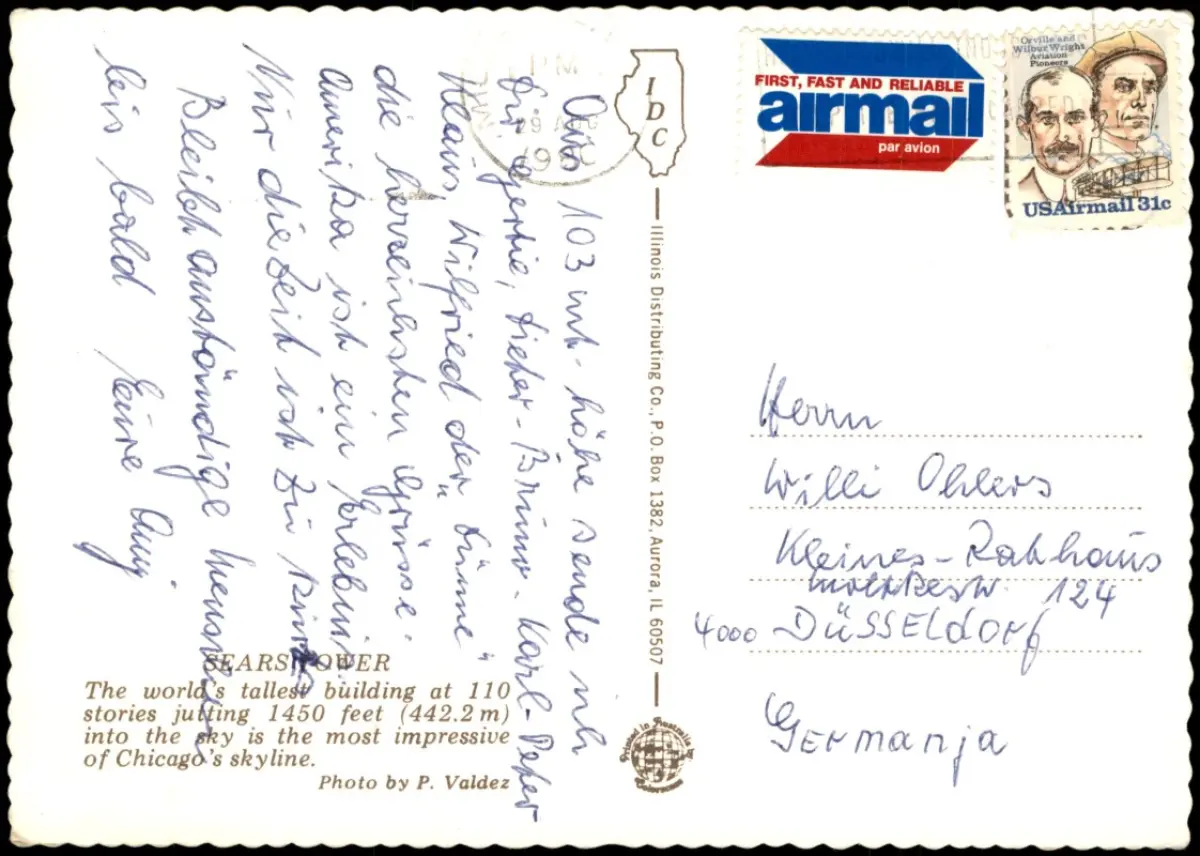 Aus 103 mt. höhe sende ich
Dir Gertie, Dieter - Bruno - Karl-Peter
Klaus, Wilfried der "Dünne"
die herzlichsten Grüsse.
Amerika ist ein Erlebnis
Nur die Zeit ist zu kurz
Bleibt anständige Menschen
bis bald Eure
SEARS TOWER
The world's tallest building at 110
stories jutting 1450 feet (442.2 m)
into the sky is the most impressive
of Chicago's skyline.
Photo by P. Valdez
PM
29 AUG
IDC
Illinois Distributing Co., P.O. Box 1382, Aurora, IL 60507
Printed in Australia by
FIRST, FAST AND RELIABLE
airmail
par avion
Orville and
Wilbur Wright
Aviation
Pioneers
USAirmail 31c
Herrn
Willi Ohlers
Kleines-Rathaus
124
4000 DÜSSELdorf
Germanja